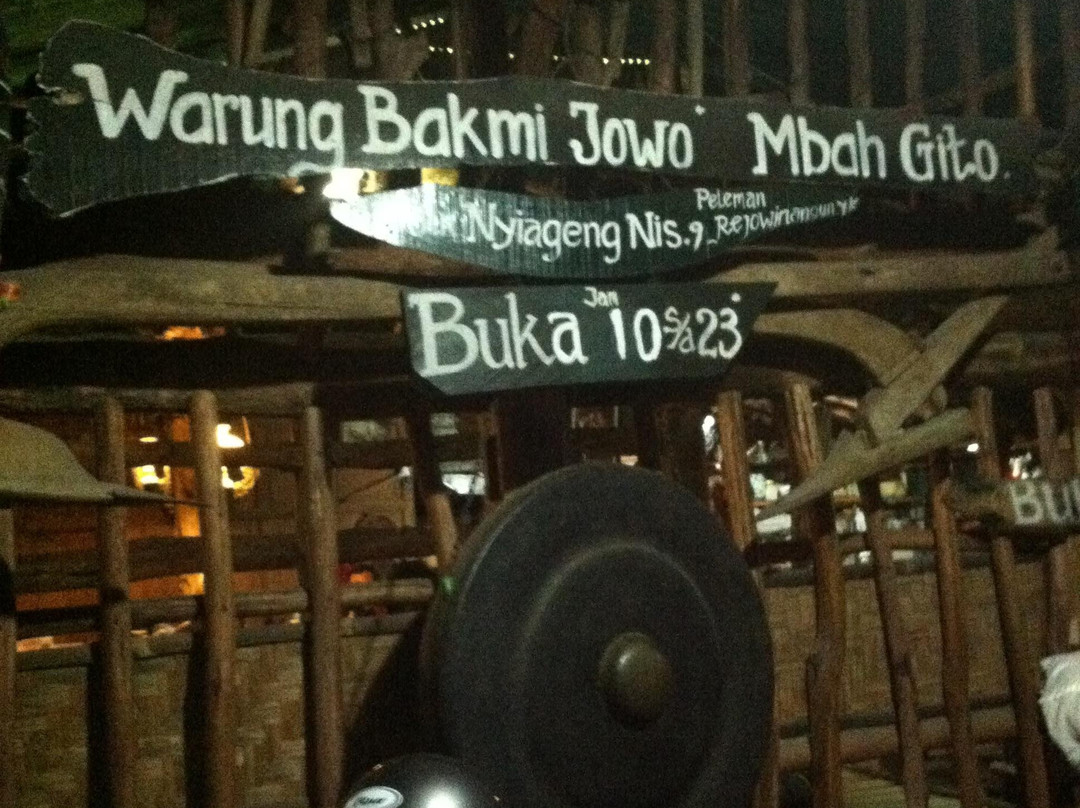 Warung Bakmi Jowo Mbah Gito.
Peleman
Nyiageng Nis.9 Rejowinangun Yk
Jam
Buka 10 s/d 23
Bu